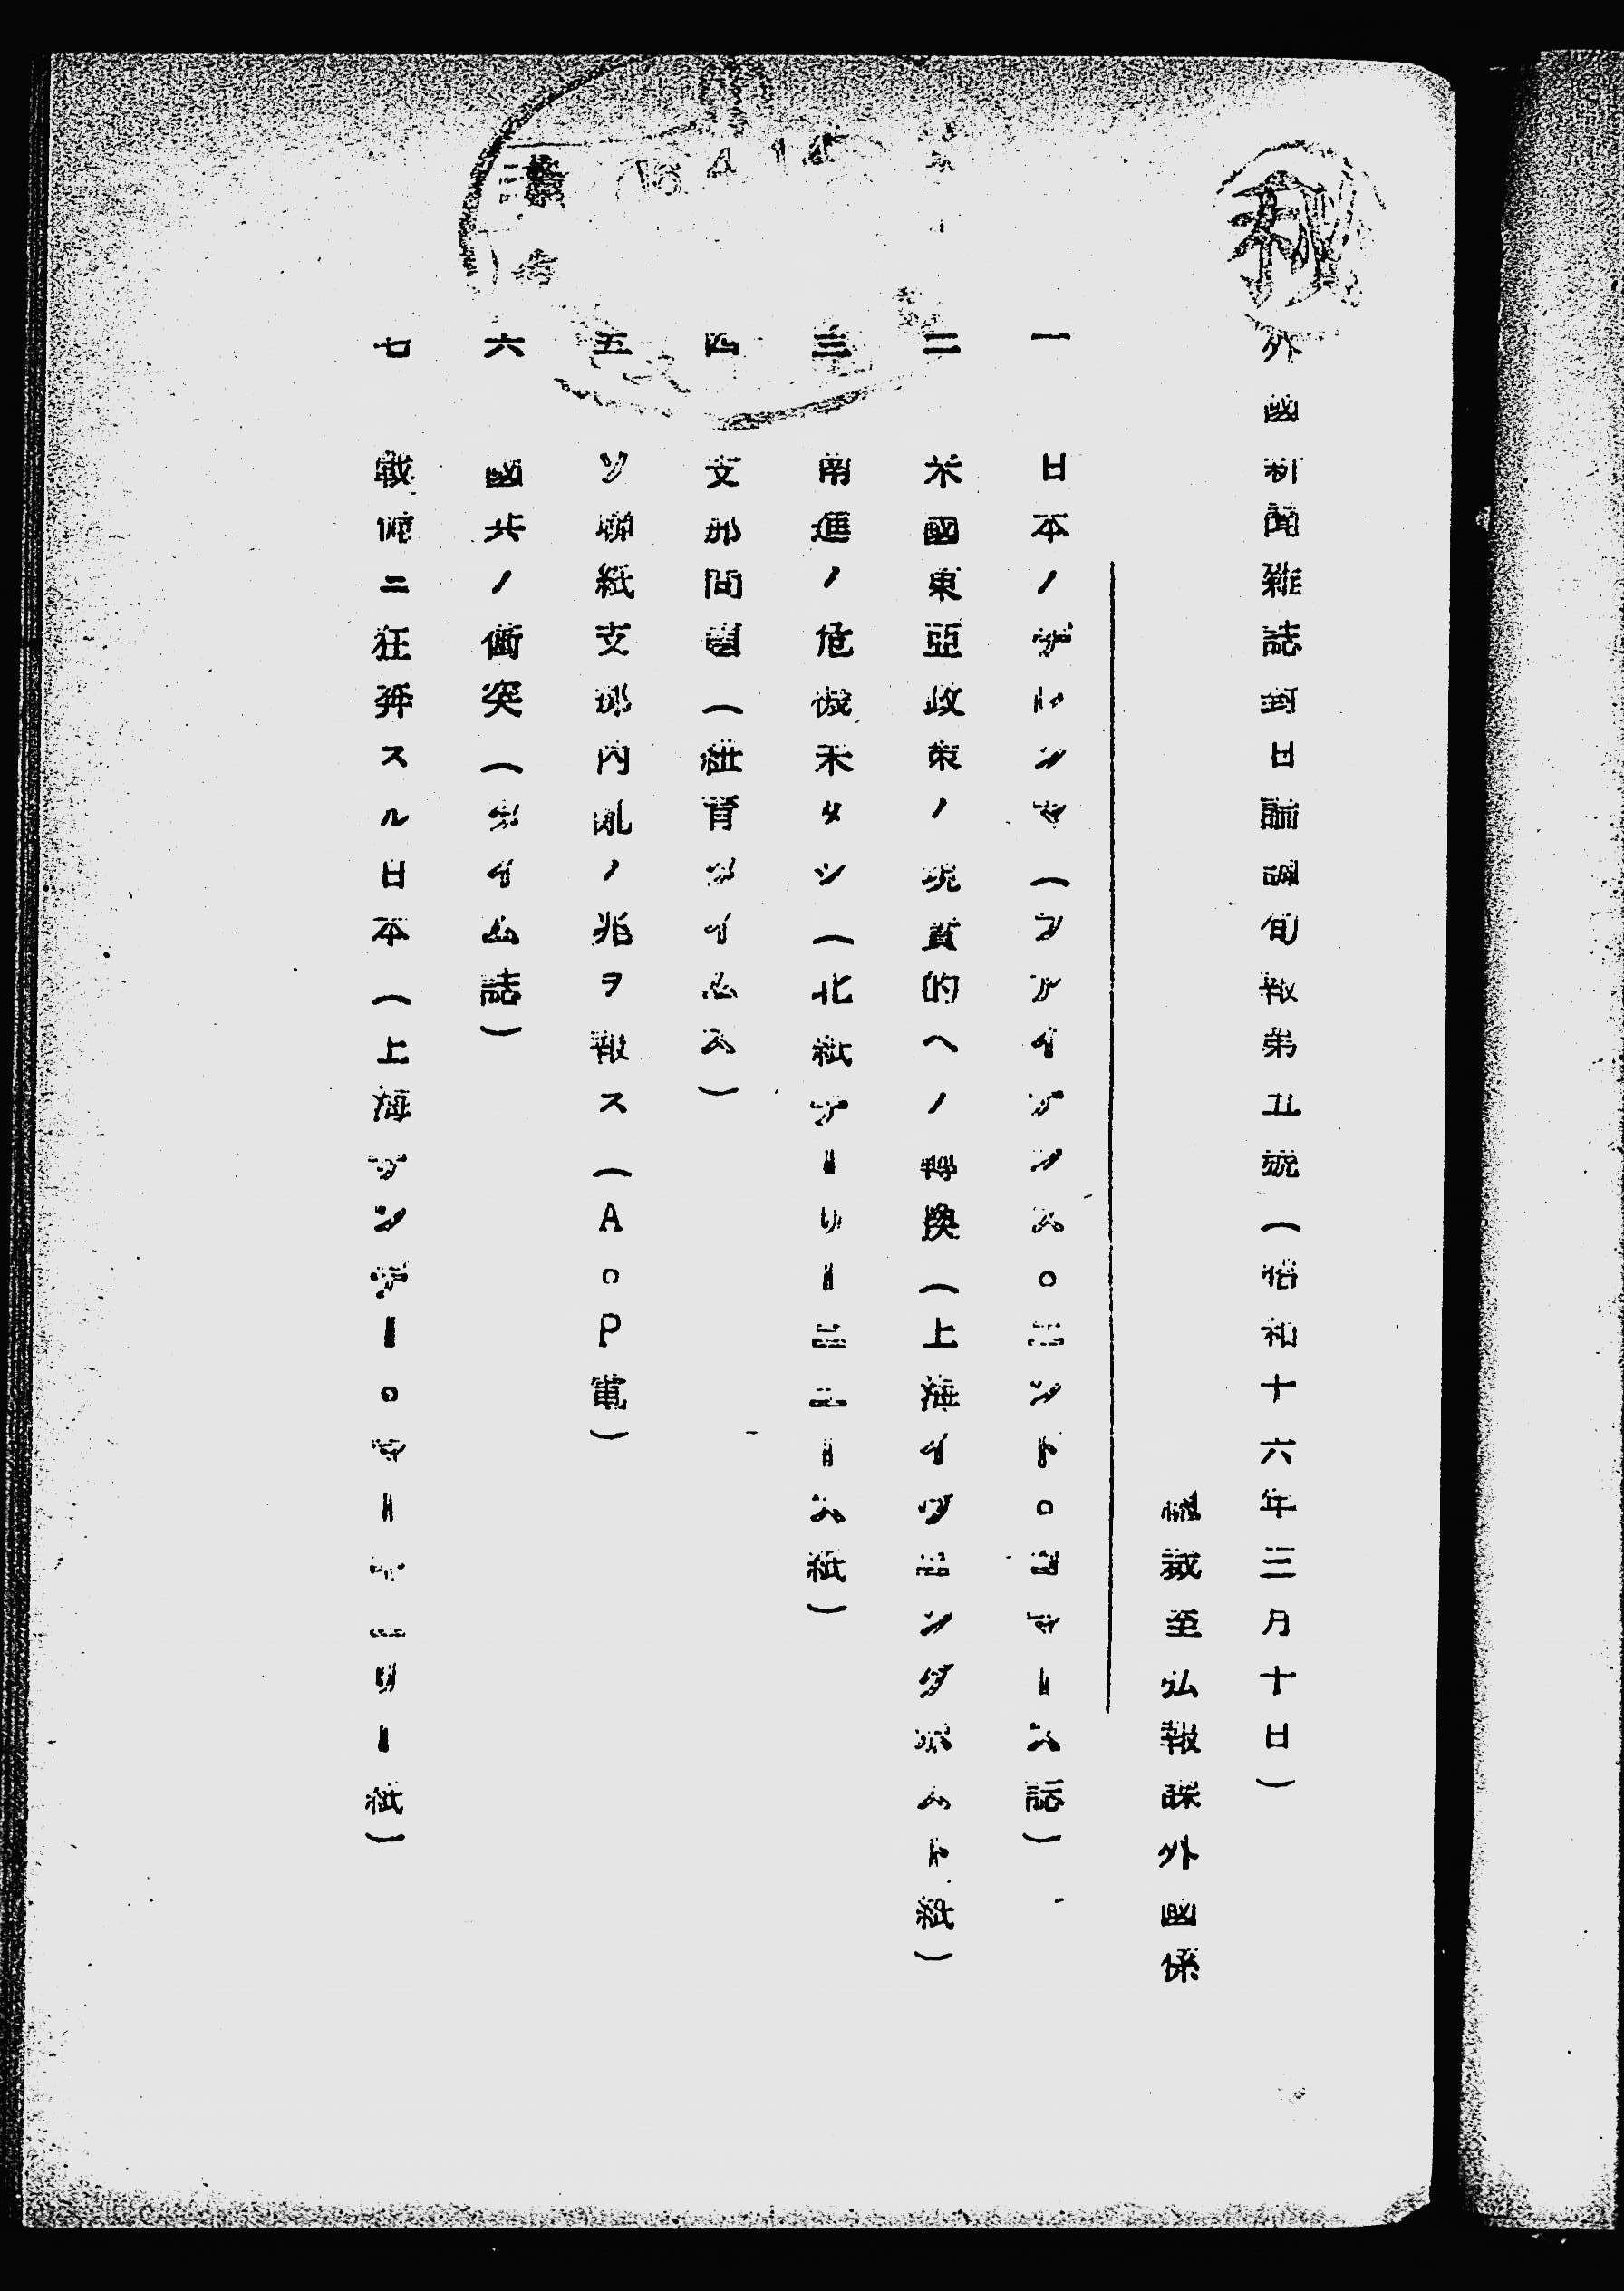 秘
外國新聞雜誌對日論調旬報第五號(昭和十六年三月十日)
弘報課外國係
一 日本ノヂレンマ(フアイナンス。エンド。コマース誌)
二 米國東亞政策ノ現實的ヘノ轉換(上海イヴニングポスト紙)
三 南進ノ危機未タシ(北紙デーリーニュース紙)
四 支那間題(紐育タイムス)
五 ソ聯紙支那内亂ノ兆ヲ報ス(A。P電)
六 國共ノ衝突(タイム誌)
七 戰備ニ狂奔スル日本(上海サンデー。マーキュリー紙)
16 4 14